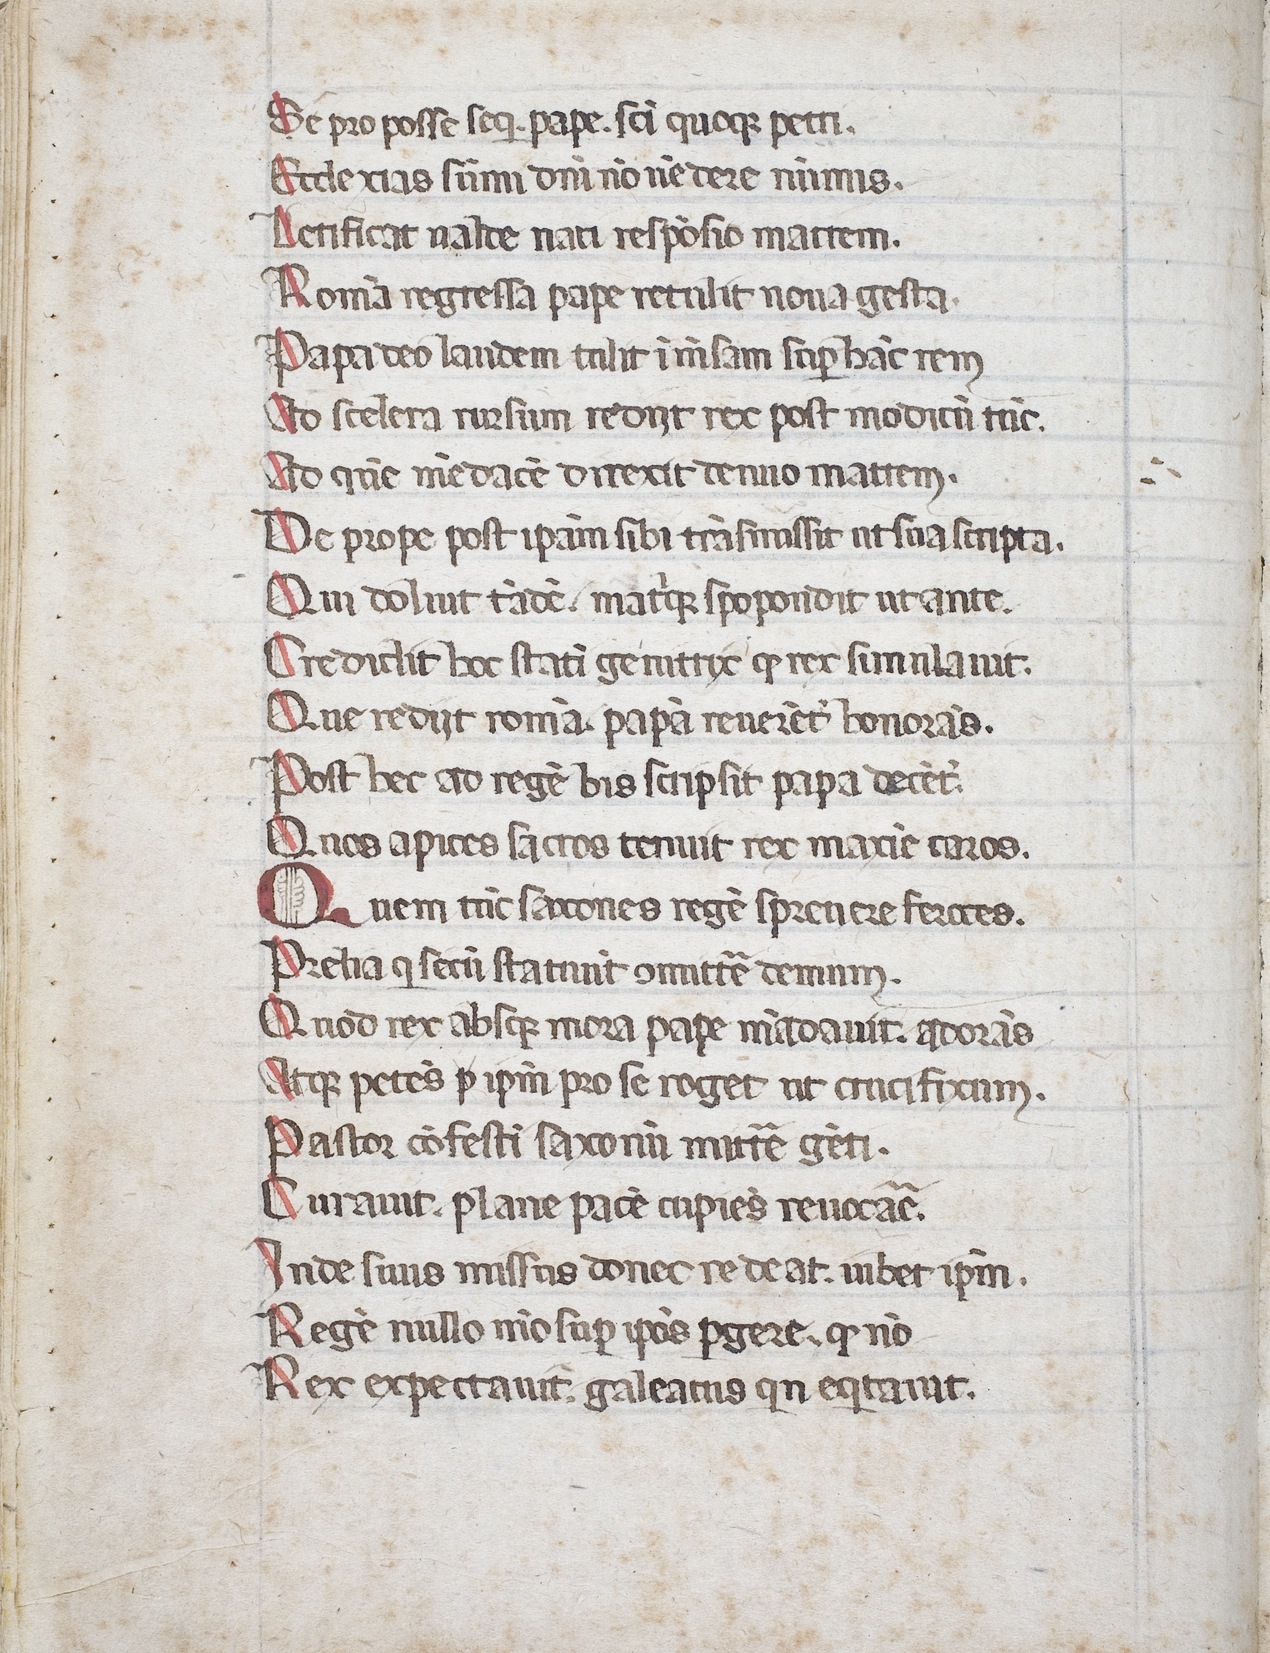 Se pro posse seq. pape. sci̅ quoqꝫ petri.
Ecclexias su̅mi dn̅i no̅ ue̅dere nu̅mis.
Letificat ualde nati respo̅sio matrem.
Roma̅ regressa pape retulit noua gesta.
Papa deo laudem tulit i̅me̅sam suꝑ ha̅c rem
Ad scelera rursum redijt rex post modicu̅ tu̅c.
Ad que̅ me̅dace̅ direxit denuo matrem.
De prope post ipa̅m sibi tra̅smissit ut sua scripta.
Qui doluit ta̅de̅. matriqꝫ spopondit ut ante.
Credidit hoc stati̅ genitrix qꝫ rex simulauit.
Que redijt roma̅. papa̅ reuere̅t᾿ honora̅s.
Post hec ad rege̅ bis scripsit papa dece̅t᾿.
Quos apices sacros tenuit rex maxi̅e caros.
Quem tu̅c saxones rege̅ spreuere feroces.
Prelia q̲ secu̅ statuit ꝯmitte̅ demum.
Quod rex absqꝫ mora pape ma̅dauit. adora̅s
Atqꝫ pete̅s ꝑ ipm̅ pro se roget ut crucifixum.
Pastor co̅festi̅ saxonu̅ mitte̅ ge̅ti.
Curauit. plane pace̅ cupie̅s reuocar̅e.
Inde suus missus donec redeat. iubet ipm̅.
Rege̅ nullo mo̅ suꝑ ipo̅s ꝑgere. qꝫ no̅
Rex expectauit. galeatus qn eq̲tauit.